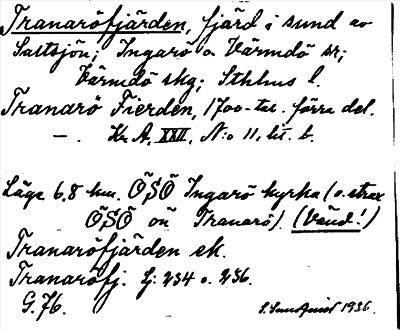 Tranaröfjärden, fjärd i sund av
Saltsjön; Ingarö o Värmdö sr;
Värmdö skg; Sthlms l.
Tranarö Fierden, 1700-tal. förra del.
—. Kr A, XXII, N:o 11, lit. b.
Läge 6,8 km. ÖSÖ Ingarö kyrka (o. strax
ÖSÖ on Tranarö). (Vänd!)
Tranaröfjärden ek.
Tranaröfj. Lj: 234 o. 236.
G. 76.
1936.